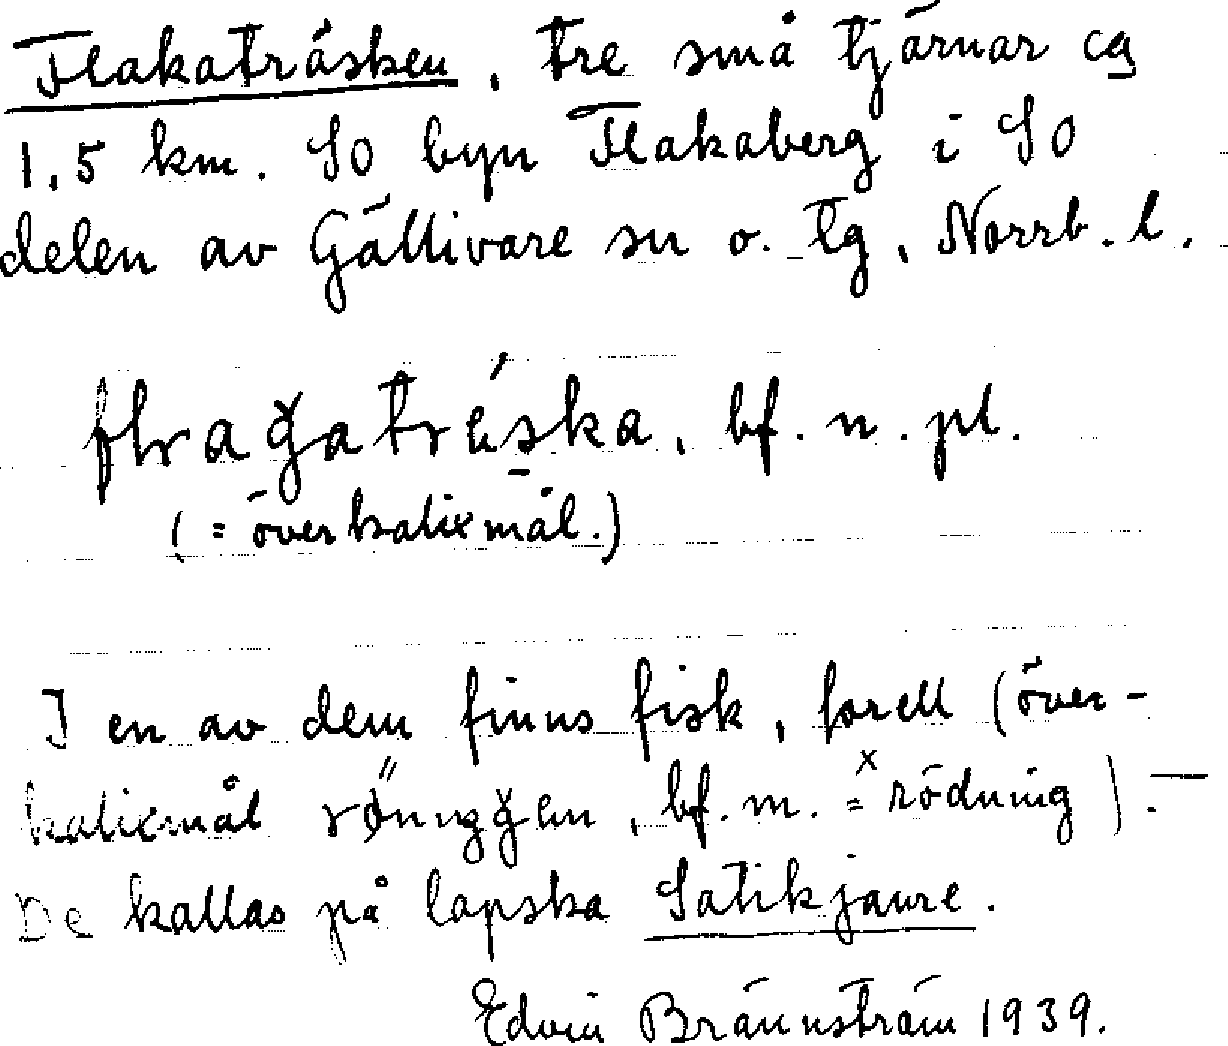 Flakaträsken, tre små tjärnar ca
1,5 km. SO byn Flakaberg i SO
delen av Gällivare sn o. tg, Norrb. l.
bf. n. pl.
( = överkalixmål.)
I en av dem finns fisk, forell (över-
kalixmål bf. m. = ˣrödning). —
De kallas på lapska Satikjaure.
Edvin Brännström 1939.